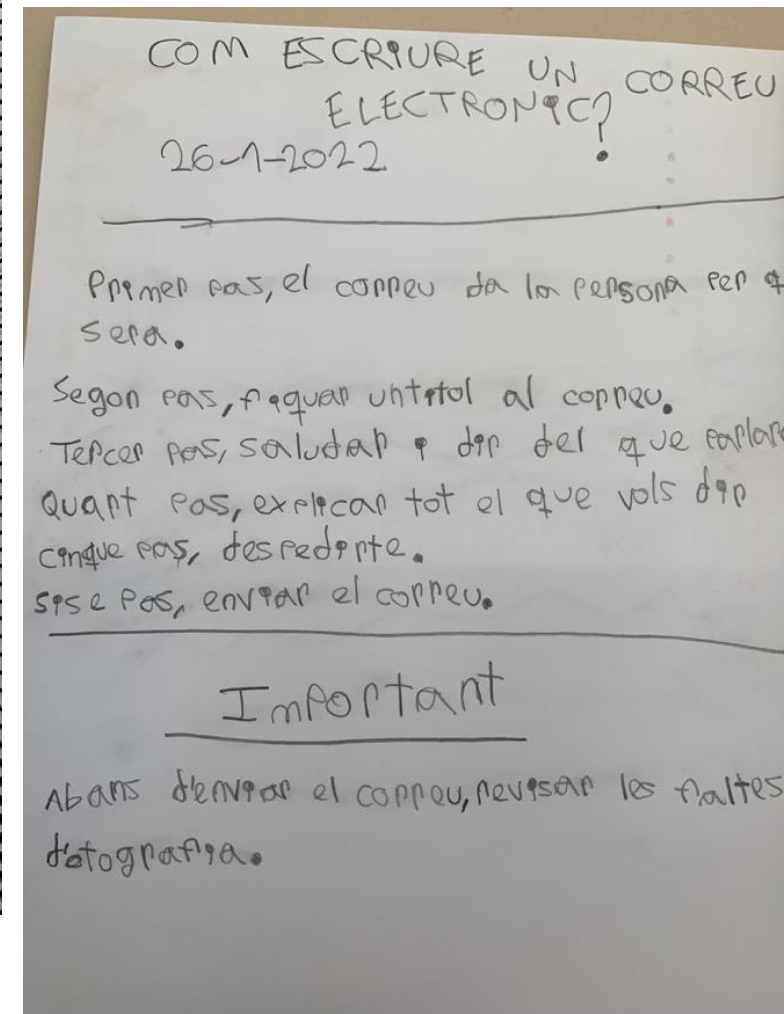 COM ESCRIURE UN CORREU
ELECTRONIC?
26-1-2022
Primer pas, el correu da la persona per q
sera.
Segon pas, fiquar untitol al correu.
Tercer pas, saludar i dir del que parlare
Quart pas, explicar tot el que vols dir
cinque pas, despedirte.
sise pas, enviar el correu.
Important
Abans d'enviar el correu, revisar les faltes
d'otografia.